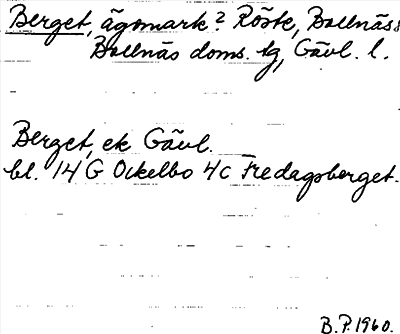 Berget, ägomark? Röste, Bollnäs s
Bollnäs doms. tg, Gävl. l.
Berget, ek Gävl.
bl. 14 G Ockelbo 4c Fredagsberget.
B.P. 1960.